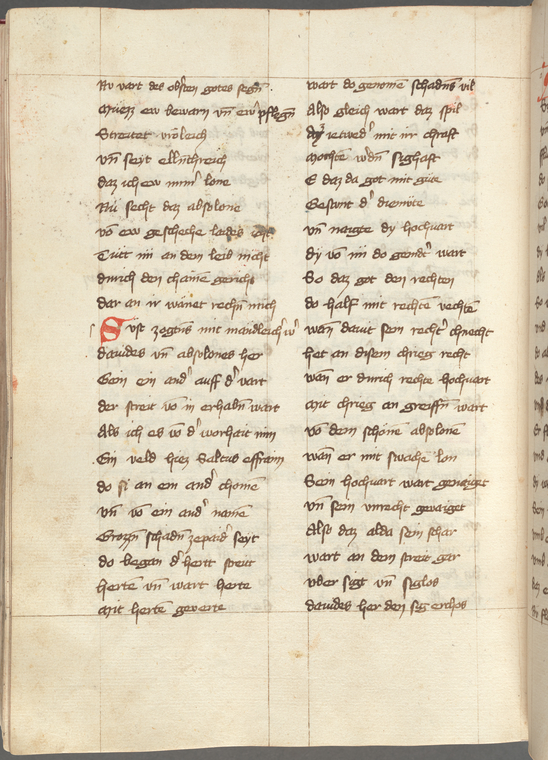 Nv vart des obr̃ten gotes segn̄
Müezz ew bewarn vn̄ ew' pflegn̄
Streitet vröleich
vn̄ seyt ellnthreich
daz ich ew im̄' lone
Nu secht daz absolone
vō ew geschehe
Tütt im an dem leib nicht
durich den chainē gericht
dar an ir wänet rechn̄ mich
Sust zogtns mit manleich'
dauides vn̄ absolones her
Gein ein and' auff d' vart
der streit vō in erhabn̄ wart
Als ich es vō d' worhait nim
Ein veld hiez Saltus effraim
do si an ein and' chomē
vn̄ vō ein and' namē
Grozzn̄ schadn̄ zepaid' seyt
do began d' hertt streit
hertē vn̄ wart herte
Mit hertē geverte
wart do genomē schadns vil
Also gleich wart daz spil
daz ietwed' mit ir chraft
Mochtē w'dn̄ sighaft
E daz da got mit güte
Gestünt d' diemüte
vn̄ naigte dy hochuart
dy vō im do gendt' wart
So daz got den rechten
do half mit rechtē vechtē
wan dauit sein recht' chnecht
het an disem chrieg recht
wan er durich rechte hochuart
Mit chrieg an greiffn̄ wart
vō dem schönē absolonē
wan er mit swachē lon
Sein hochuart wart genaiget
vn̄ sein vnrecht gevaiget
Also daz alda sein schar
wart an dem streit gar
vber sigt vn̄ siglos
dauides her den sig erchos